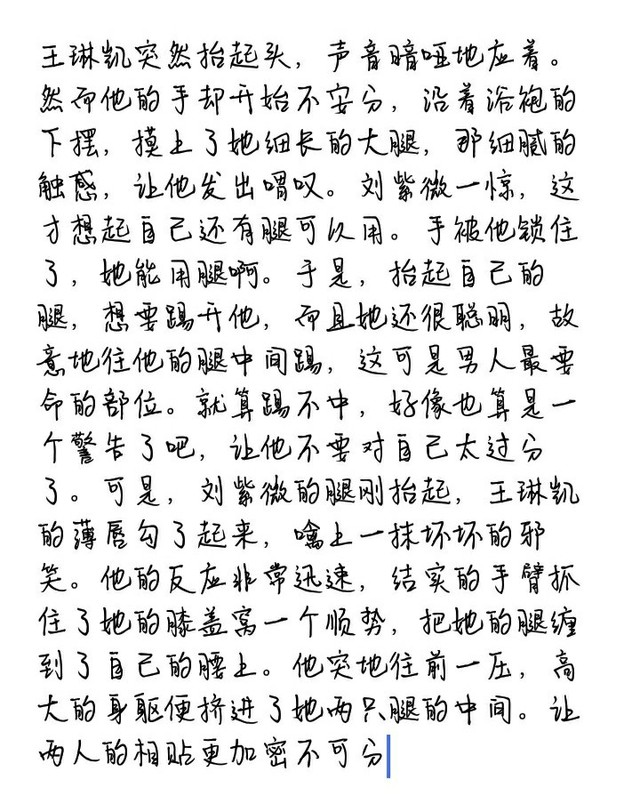 王琳凯突然抬起头，声音暗哑地应着。
然而他的手却开始不安分，沿着浴袍的
下摆，摸上了她细长的大腿，那细腻的
触感，让他发出喟叹。刘紫微一惊，这
才想起自己还有腿可以用。手被他锁住
了，她能用腿啊。于是，抬起自己的
腿，想要踢开他，而且她还很聪明，故
意地往他的腿中间踢，这可是男人最要
命的部位。就算踢不中，好像也算是一
个警告了吧，让他不要对自己太过分
了。可是，刘紫微的腿刚抬起，王琳凯
的薄唇勾了起来，噙上一抹坏坏的邪
笑。他的反应非常迅速，结实的手臂抓
住了她的膝盖窝一个顺势，把她的腿缠
到了自己的腰上。他突地往前一压，高
大的身躯便挤进了她两只腿的中间。让
两人的相贴更加密不可分